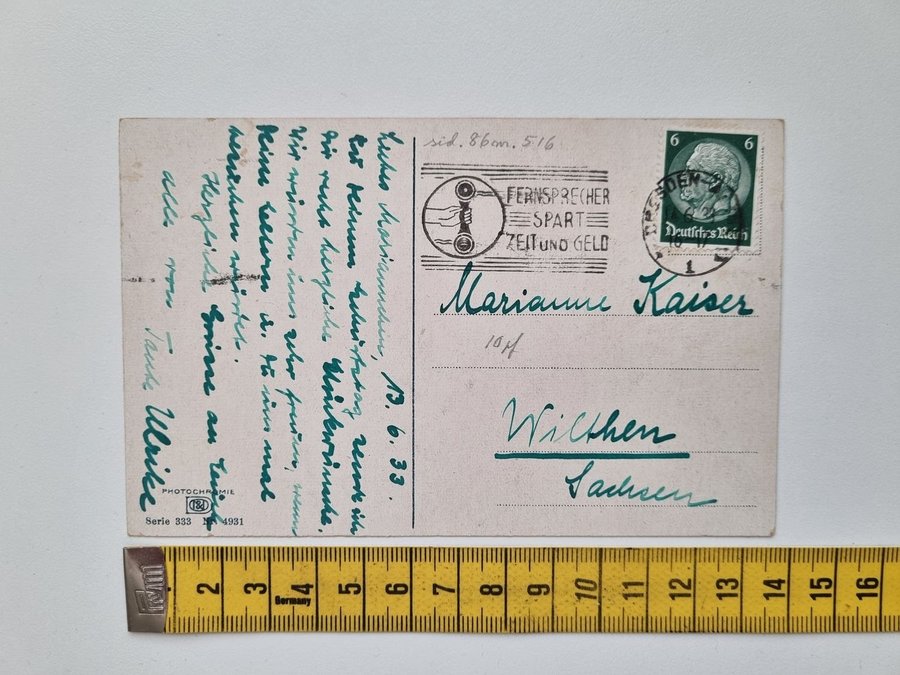 13. 6. 33.
Liebes Mariannchen,
zu Deinem Geburtstag sende ich
Dir recht herzliche Glückwünsche.
Wir würden uns sehr freuen, wenn
Deine Eltern u. Du uns mal
besuchen würdet.
Herzliche Grüße an Euch
alle von
Tante Ulrike
PHOTOCHROMIE
Serie 333 Nr. 4931
sid. 86 m. 516
FERNSPRECHER
SPART
ZEIT UND GELD
6 6
Deutsches Reich
DRESDEN-A
1
Marianne Kaiser
10 pf
Wilthen
Sachsen
2 3 4 5 6 7 8 9 10 11 12 13 14 15 16
Germany